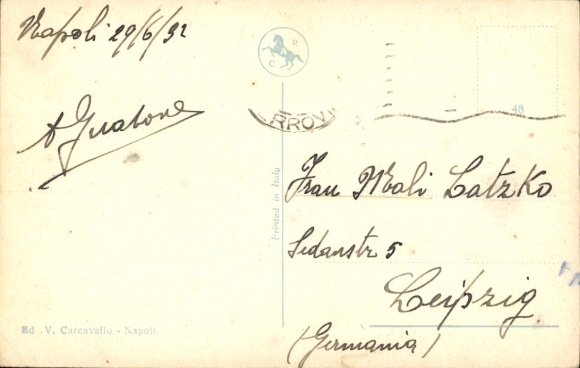 Napoli 29/6/32
A Guatone
C R
RROVI
48
Frau Mali Latzko
Sedanstr 5
Leipzig
(Germania)
Printed in Italy
Ed. V. Carcavallo - Napoli